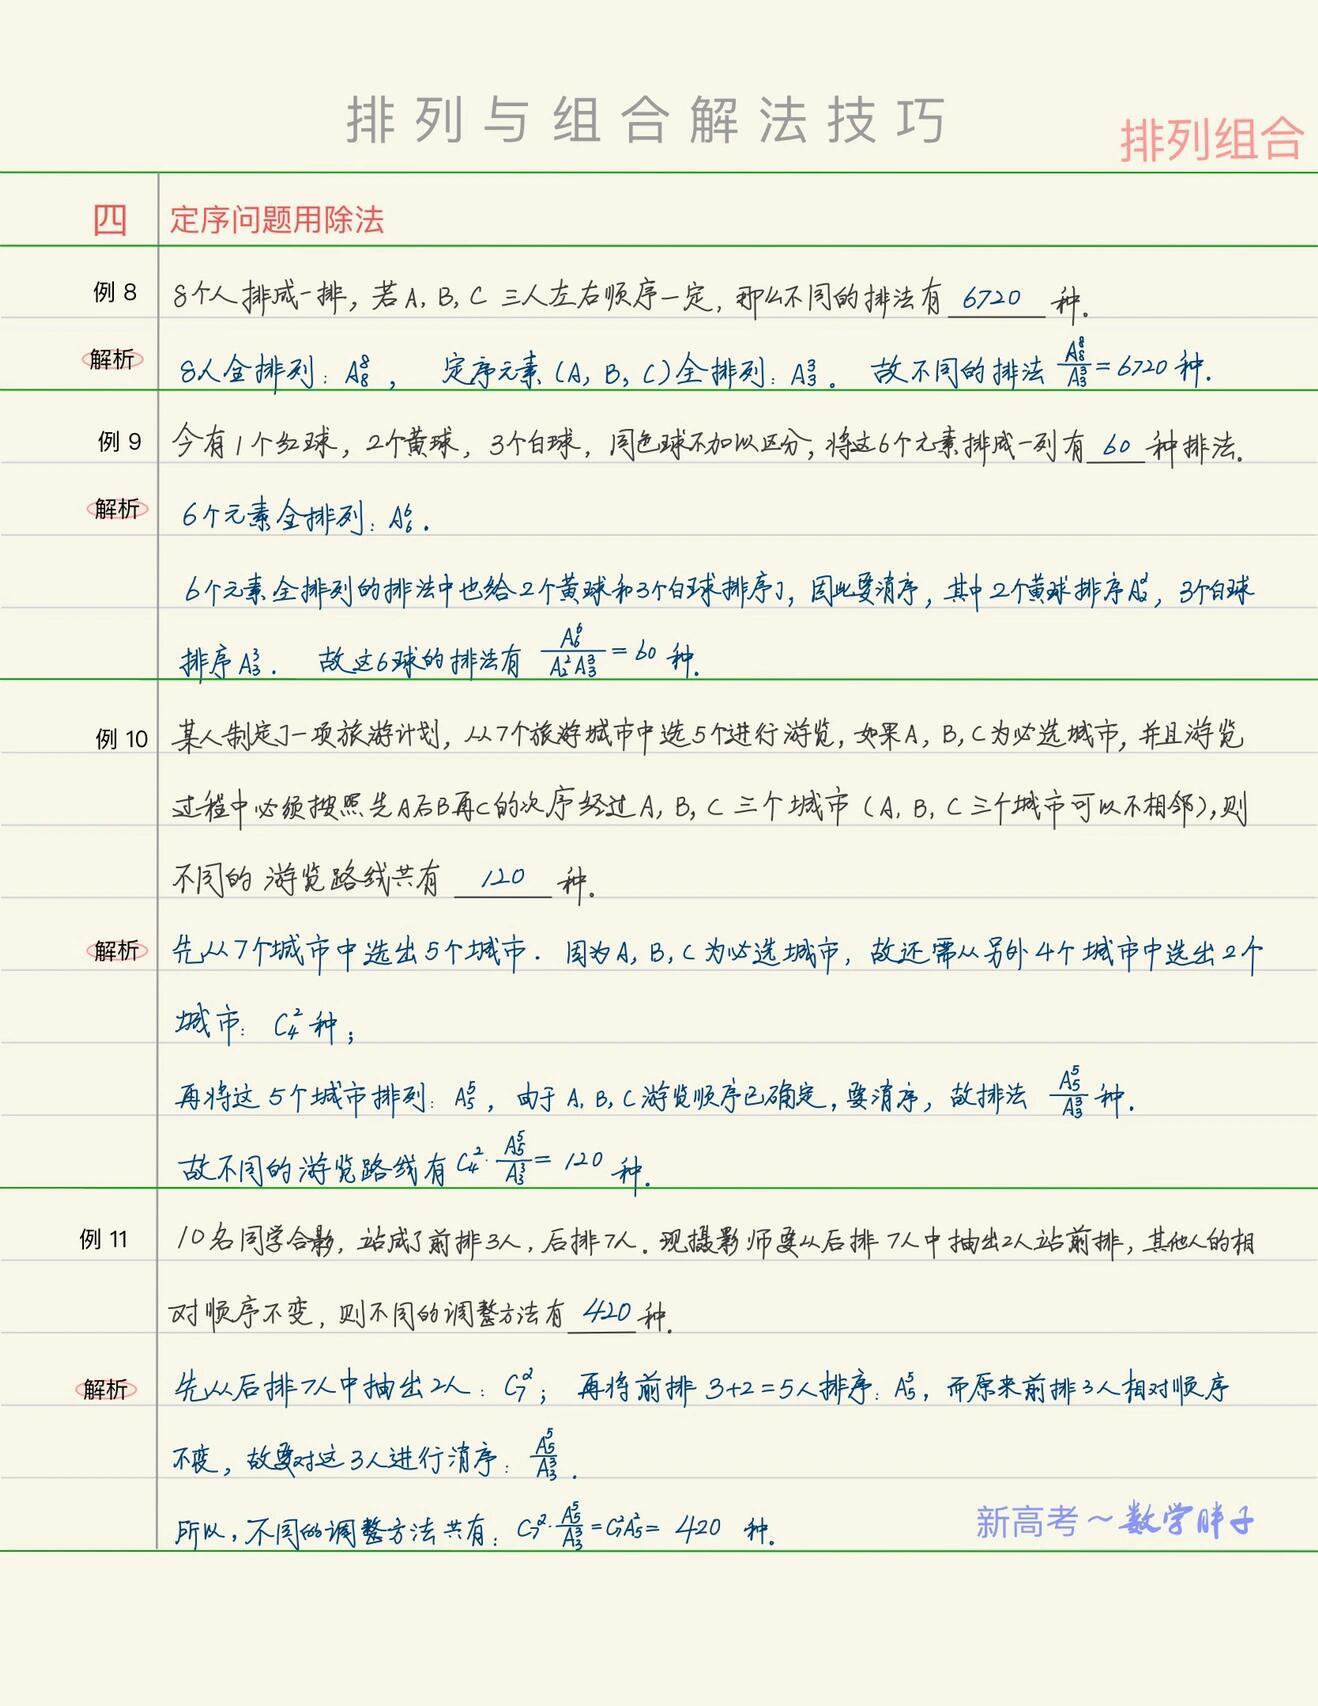 排列与组合解法技巧
排列组合
四 定序问题用除法
例 8 8个人排成一排，若A, B, C 三人左右顺序一定，那么不同的排法有 6720 种。
解析 8人全排列：A₈⁸， 定序元素（A, B, C）全排列：A₃³。 故不同的排法 A₈⁸/A₃³=6720 种.
例 9 今有1个红球，2个黄球，3个白球，同色球不加以区分，将这6个元素排成一列有 60 种排法。
解析 6个元素全排列：A₆⁶.
6个元素全排列的排法中也给2个黄球和3个白球排序了，因此要消序，其中2个黄球排序A₂²，3个白球
排序A₃³. 故这6球的排法有 A₆⁶/A₂²A₃³ = 60 种.
例 10 某人制定了一项旅游计划，从7个旅游城市中选5个进行游览，如果A, B, C为必选城市，并且游览
过程中必须按照先A后B再C的次序经过A, B, C 三个城市（A, B, C三个城市可以不相邻），则
不同的游览路线共有 120 种。
解析 先从7个城市中选出5个城市. 因为A, B, C为必选城市，故还需从另外4个城市中选出2个
城市：C₄² 种；
再将这5个城市排列：A₅⁵，由于A, B, C游览顺序已确定，要消序，故排法 A₅⁵/A₃³ 种.
故不同的游览路线有 C₄²·A₅⁵/A₃³ = 120 种.
例 11 10名同学合影，站成了前排3人，后排7人. 现摄影师要从后排7人中抽出2人站前排，其他人的相
对顺序不变，则不同的调整方法有 420 种.
解析 先从后排7人中抽出2人：C₇²； 再将前排3+2=5人排序：A₅⁵，而原来前排3人相对顺序
不变，故要对这3人进行消序：A₅⁵/A₃³.
所以，不同的调整方法共有：C₇²·A₅⁵/A₃³=C₇²A₅²= 420 种.
新高考～数学胖子